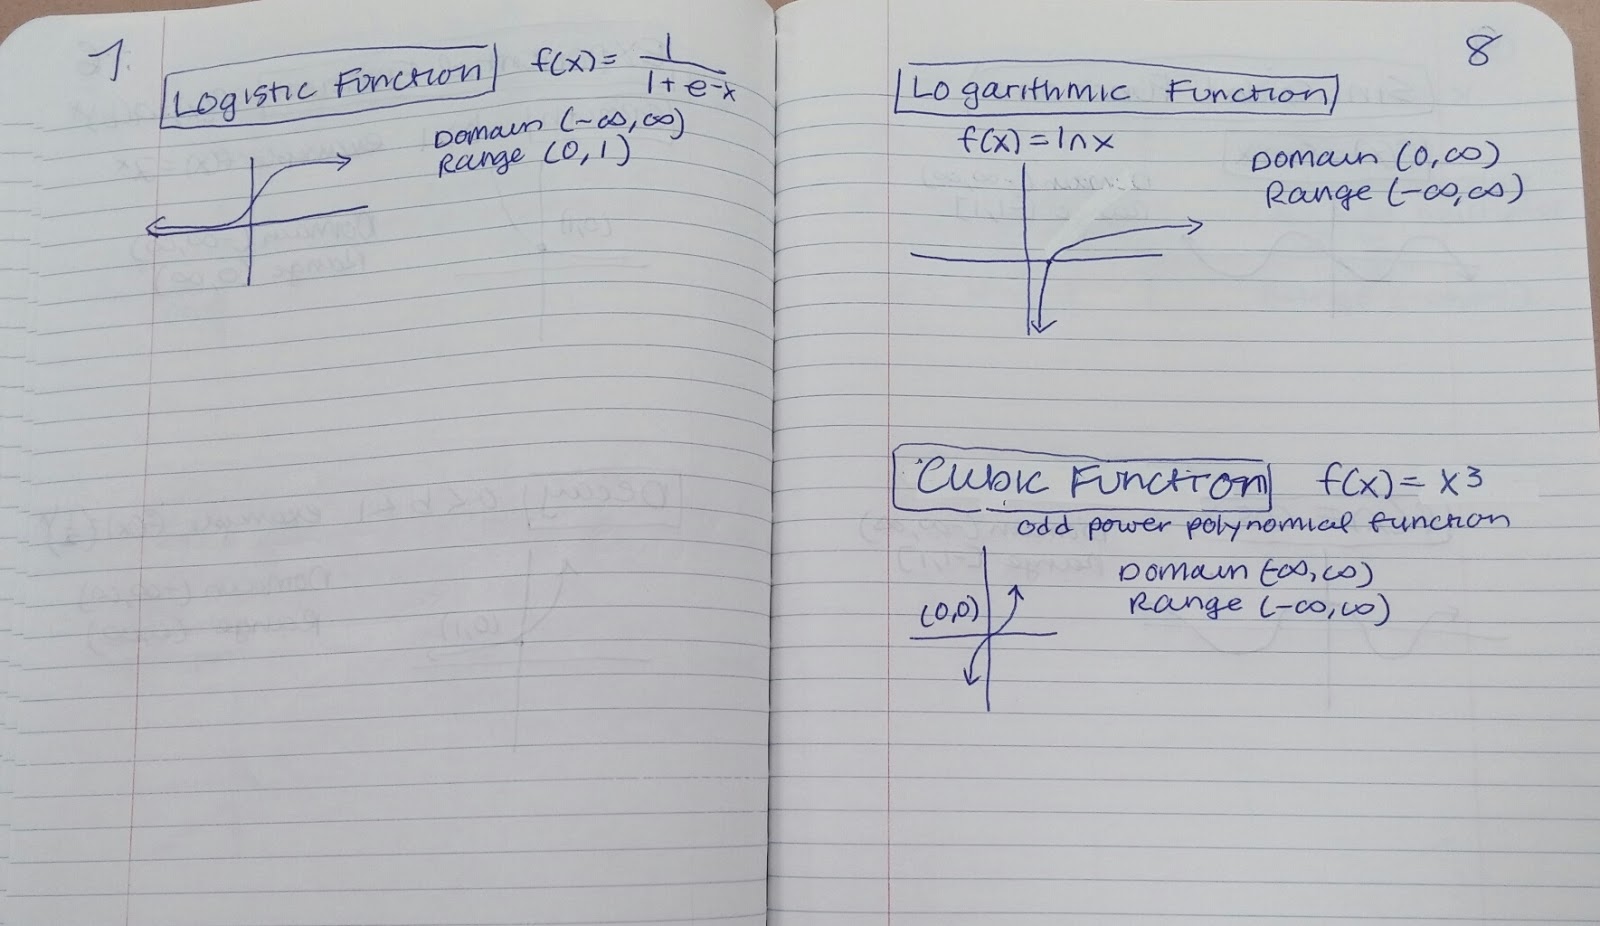 7.
Logistic Function f(x) = 1/(1 + e^-x)
Domain (-∞,∞)
Range (0, 1)
8
Logarithmic Function
f(x) = ln x
Domain (0,∞)
Range (-∞,∞)
Cubic Function f(x) = x^3
odd power polynomial function
Domain (-∞,∞)
(0,0) Range (-∞,∞)